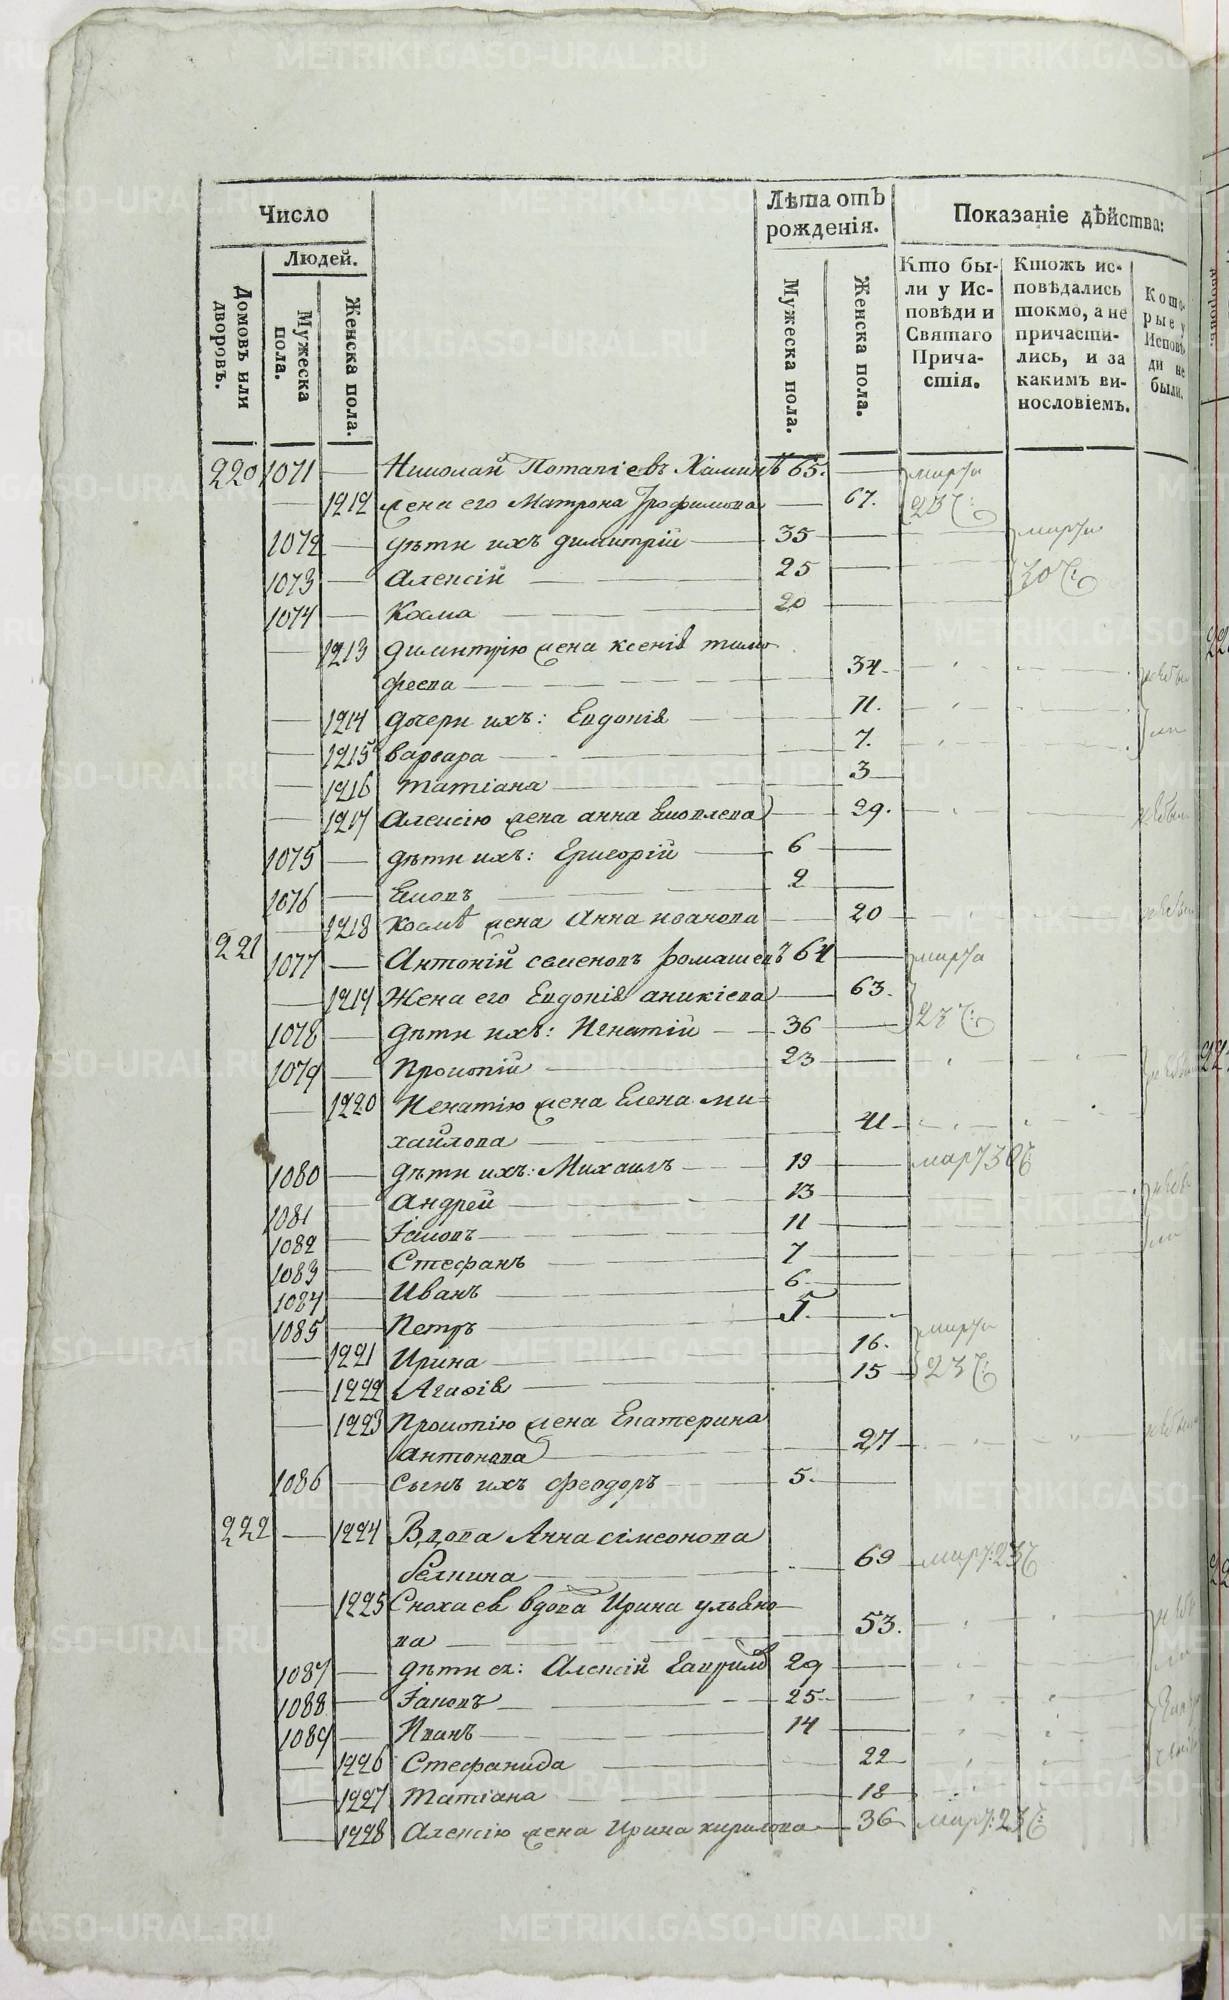 Число
Людей.
Домовъ или дворовъ.
Мужеска пола.
Женска пола.
Лѣта отъ рожденія.
Мужеска пола.
Женска пола.
Показаніе дѣйства:
Кто были у Исповѣди и Святаго Причастія.
Ктожъ исповѣдались токмо, а не причастились, и за какимъ винословіемъ.
Которые у Исповѣди не были.
220 1071 — Николай Потапіевъ 65. — марта
— 1212 жена его Матрона Трофимова — 67. 23 ч:
1072 — дѣти ихъ димитрій — 35 — марта
1073 — алексій — 25 — 30 ч:
1074 — Косма — 20 —
— 1213 димитрію жена ксенія тимо
феева — 34 —
— 1214 дочери ихъ: Евдокія — 11.
— 1215 варвара — 7.
— 1216 татіана — 3 —
— 1217 алексію жена анна Іаковлева — 29.
1075 — дѣти ихъ: Григорій — 6 —
1076 — Іаковъ — 2 —
— 1218 космѣ жена Анна иванова — 20
221 1077 — Антоній семеновъ Ромашевъ 64 — марта
— 1219 Жена его Евдокія аникіева — 63. 23 ч:
1078 — дѣти ихъ: Игнатій — 36 —
1079 — Прокопій — 23 —
— 1220 Игнатію жена Елена ми-
хайлова — 41 —
1080 — дѣти ихъ: Михаилъ — 19 — мар: 30 ч:
1081 — андрей — 13 —
1082 — Іаковъ — 11 —
1083 — Стефанъ — 7 —
1084 — Иванъ — 6 —
1085 — Петръ — 5. — марта
— 1221 Ирина — 16. 23 ч:
— 1222 Агафія — 15
— 1223 Прокопію жена Екатерина
антонова — 27 —
1086 — сынъ ихъ феодоръ — 5. —
222 — 1224 Вдова Анна сімеонова
— 69 мар: 23 ч:
— 1225 Сноха ея вдова Ирина ульяно
ва — 53.
1087 — дѣти ея: Алексій Гаврилов 29 —
1088 — Іаковъ — 25 —
1089 — Иванъ — 14 —
— 1226 Стефанида — 22
— 1227 татіана — 18 —
— 1228 алексію жена Ирина кирилова — 36 мар: 23 ч:
METRIKI.GASO-URAL.RU